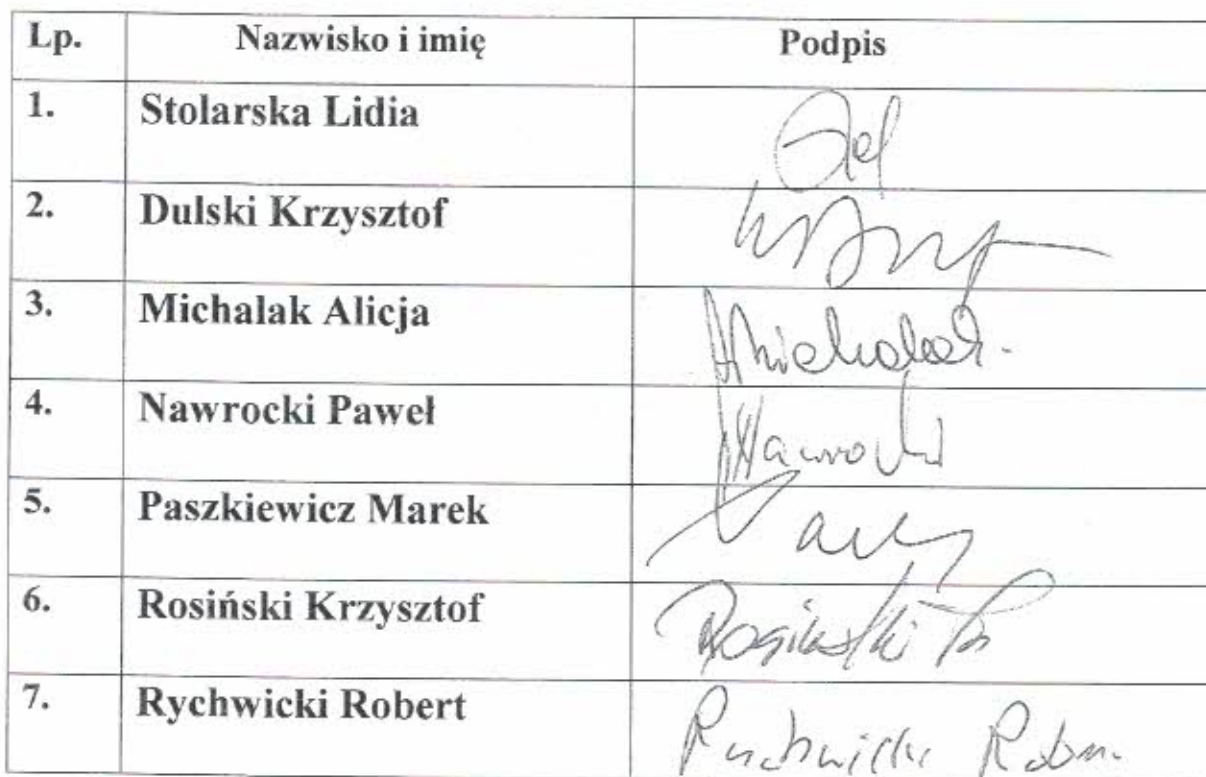 Lp. Nazwisko i imię Podpis
1. Stolarska Lidia
2. Dulski Krzysztof
3. Michalak Alicja AMichalak.
4. Nawrocki Paweł Nawrocki
5. Paszkiewicz Marek
6. Rosiński Krzysztof Rosiński
7. Rychwicki Robert Rychwicki Robert